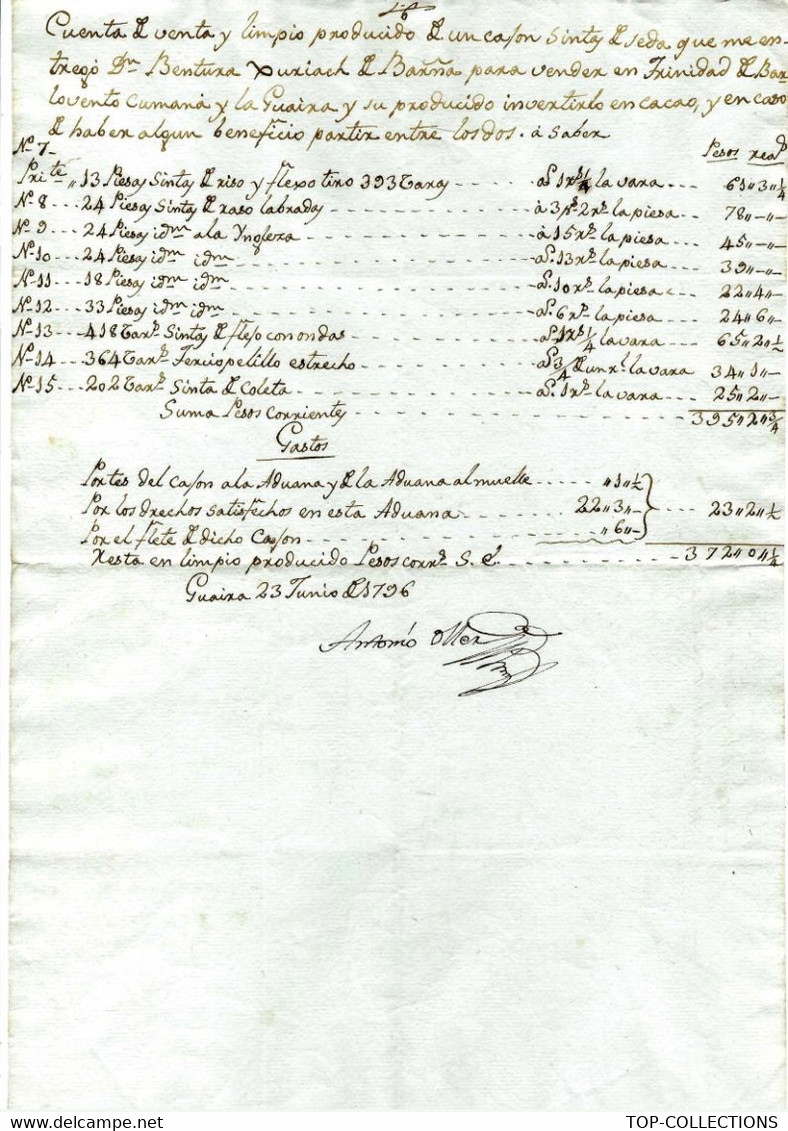 Cuenta de venta y limpio producido de un cason Sintas de seda que me en-
tregó Dn. Bentura Xuriach de Barña para vender en Trinidad de Bar
lovento Cumaná y la Guaira y su producido invertirlo en cacao, y en caso
de haber algun beneficio partir entre los dos. á Saber
Pesos reas
No 7-
Prite " 13 Piesas Sintas de riso y flexo tiro 393 Varas - - - a 1 rs 1/4 la vara - - 61"3"1/4
No 8 - - - 24 Piesas Sintas de raso labradas - - - á 3 ps 2 rs la piesa - - - 78"-"-
No 9 - - - 24 Piesas idm a la Yngleza - - - á 15 rs la piesa - - - 45"-"-
No 10 - - - 24 Piesas idm idm - - - a 13 rs la piesa - - - 39"-"-
No 11 - - - 18 Piesas idm idm - - - a 10 rs la piesa - - - 22"4"-
No 12 - - - 33 Piesas idm idm - - - a 6 rs la piesa - - - 24"6"-
No 13 - - - 418 Vars Sintas de flexo con ondas - - - a 1 rs 1/4 la vara - - - 65"2"1/2
No 14 - - - 364 Vars Terciopelillo estrecho - - - a 3/4 de un rl la vara 34"1"-
No 15 - - - 202 Vars Sinta de Coleta - - - a 1 rs la vara - - - 25"2"-
Suma Pesos corrientes - - - 395"2"3/4
Gastos
Portes del cason a la Aduana y de la Aduana al muelle - - - "1"1/2
Por los drechos satisfechos en esta Aduana - - - 22"3"- - - - 23"2"1/2
Por el flete de dicho Cason - - - "6"-
Resta en limpio producido Pesos corrs S. E. - - - 372"0"1/4
Guaira 23 Junio de 1796
Antonio Oller
TOP-COLLECTIONS